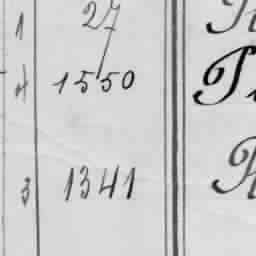 1 27
4 1550
3 1341